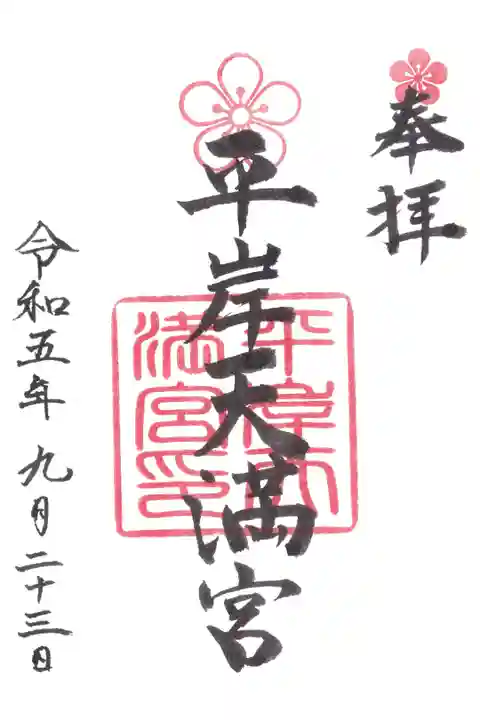 奉拝
平岸天満宮
平岸天満宮印
令和五年 九月二十三日